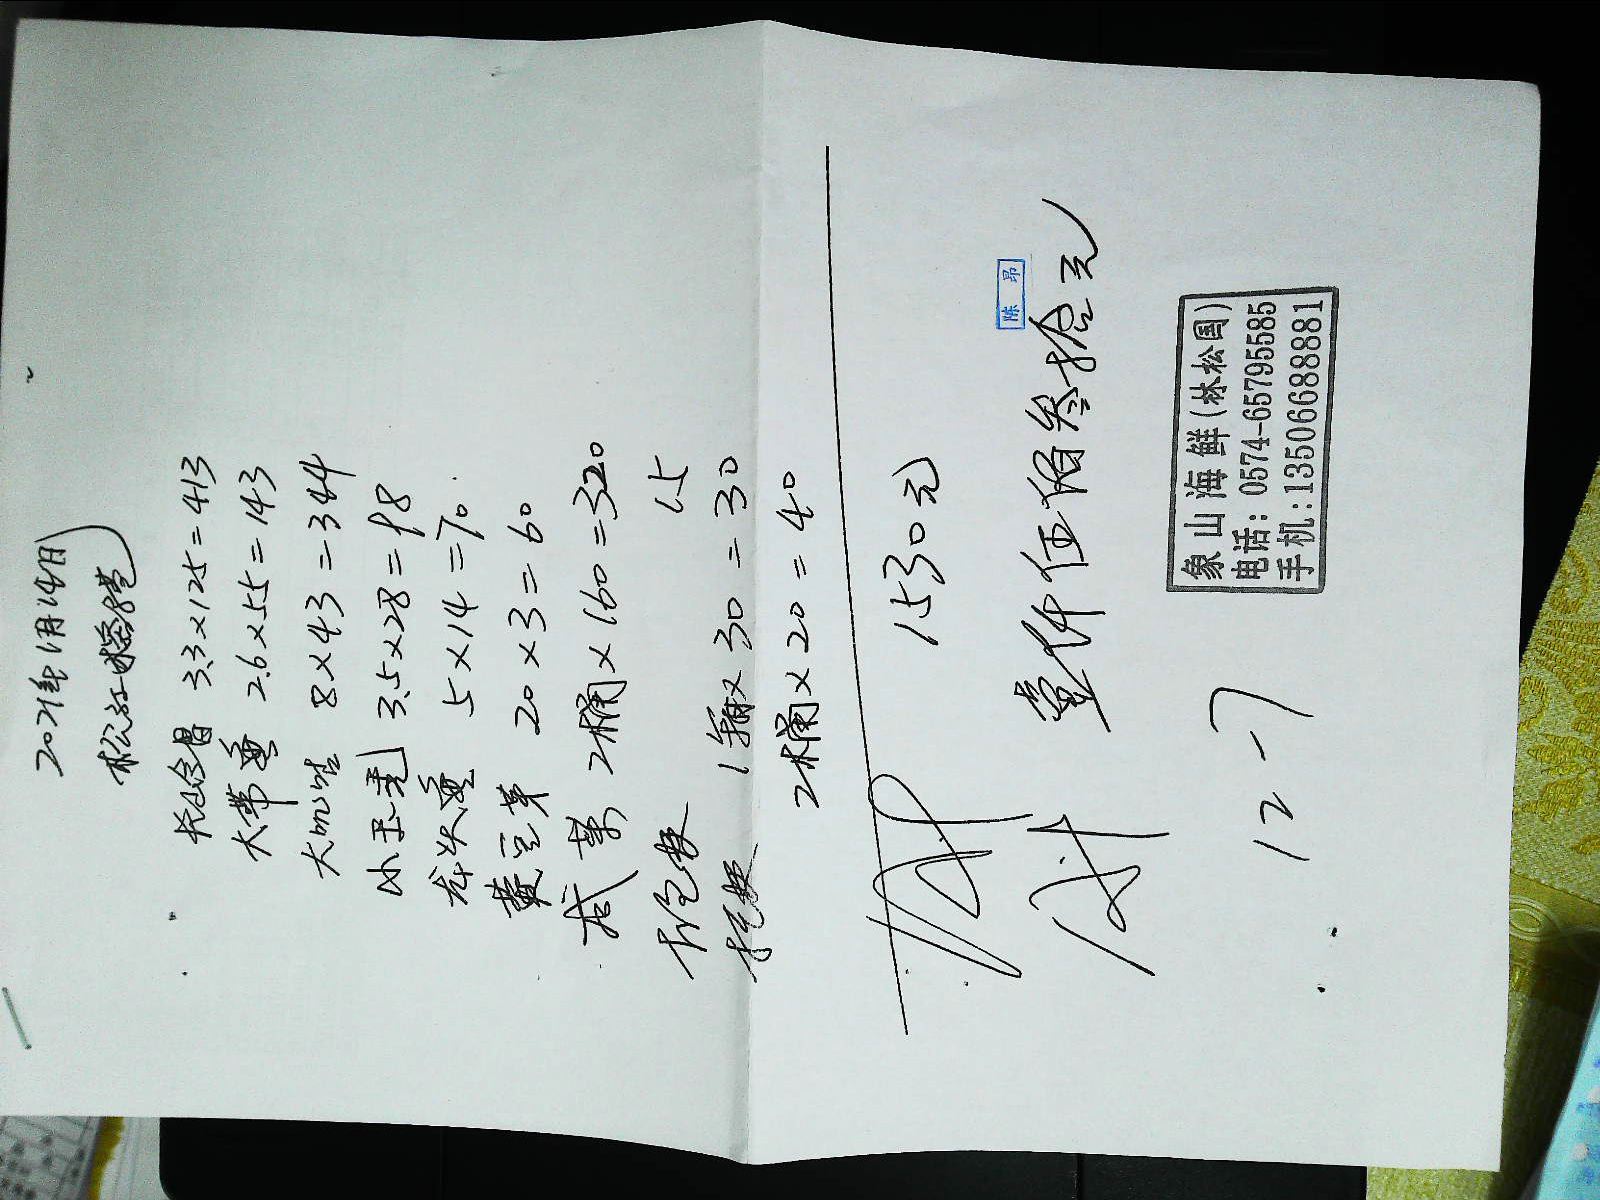 2021年1月14日
3.3×125=413
大带鱼 2.6×55=143
大 8×43=344
小 3.5×28=98
龙头鱼 5×14=70.
黄豆芽 20×3=60
咸 2桶×160=320
打包费 15
1箱×30=30
2桶×20=40
1530元
陈昂
壹仟伍佰叁拾元
12-7
象山海鲜(林松国)
电话:0574-65795585
手机:13506688881